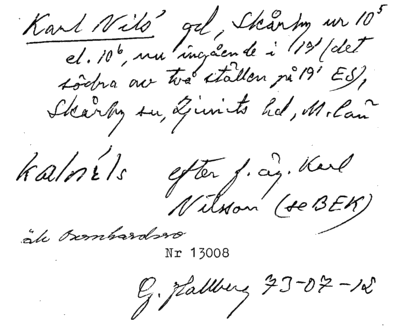 Karl Nils' gd, Skårby nr 10⁵
el. 10⁶, nu ingående i 19¹ (det
södra av två ställen på 19¹ ES),
Skårby sn, Ljunits hd, M. län
efter f. äg. Karl
Nilsson (se BEK)
Nr 13008
G. Hallberg 73-07-12